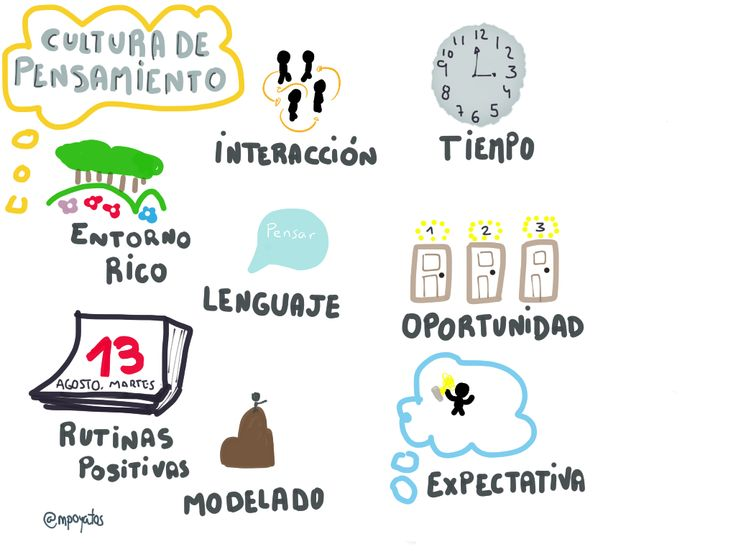 CULTURA DE
PENSAMIENTO
INTERACCIÓN
12
11
1
10
2
9
3
8
4
7
6
5
TIEMPO
ENTORNO
RICO
Pensar
LENGUAJE
1 2 3
OPORTUNIDAD
13
AGOSTO. MARTES
RUTINAS
POSITIVAS
MODELADO
EXPECTATIVA
@mpoyatos